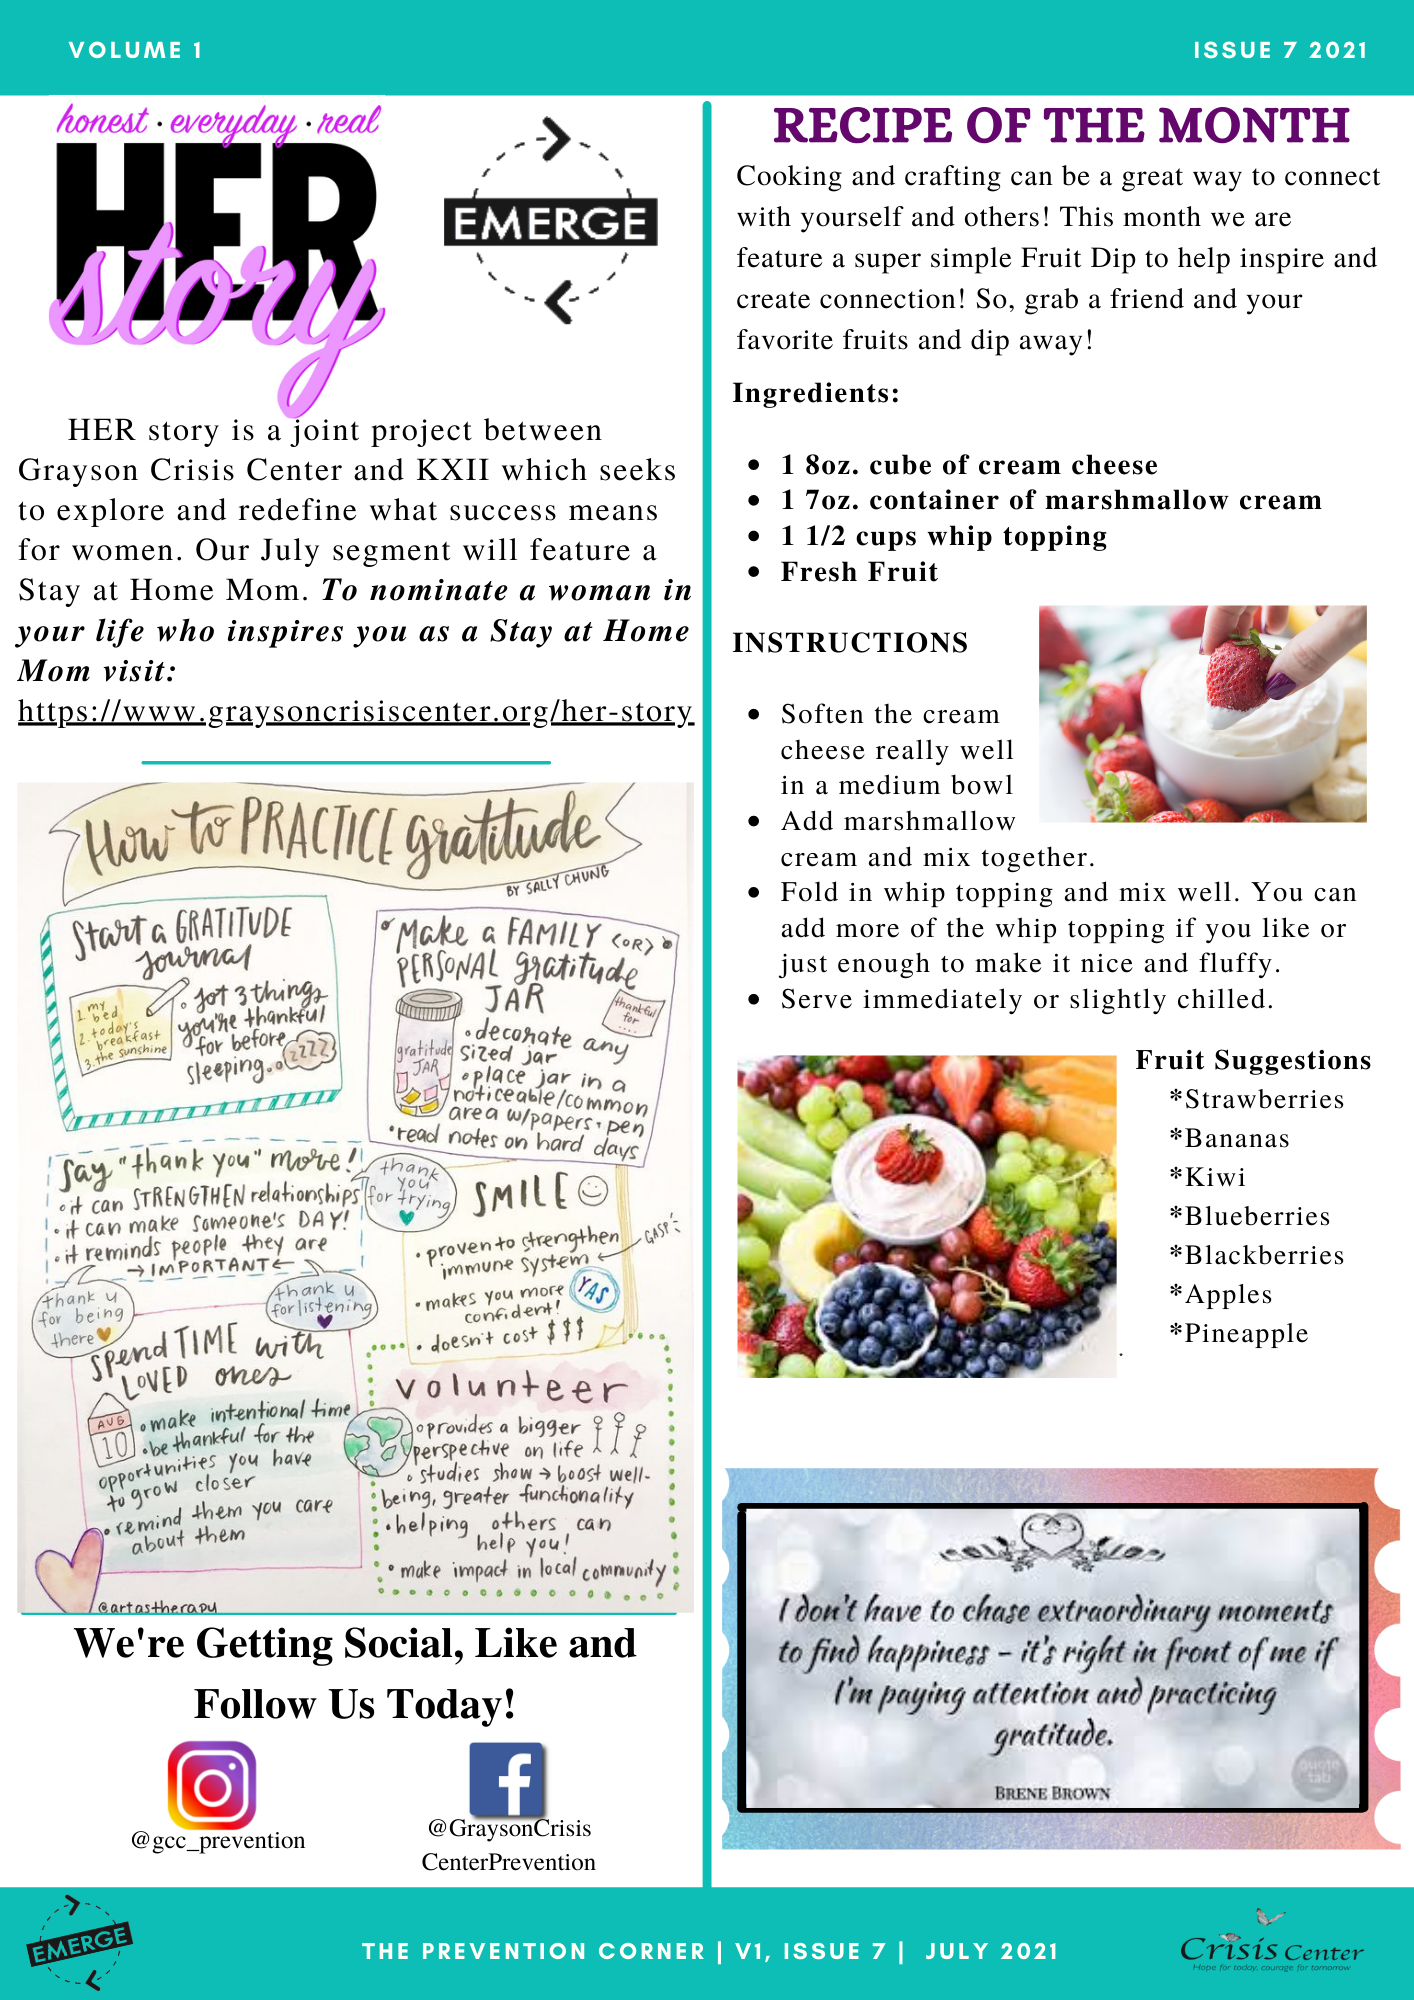 VOLUME 1
ISSUE 7 2021
honest · everyday · real
HER
story
EMERGE
HER story is a joint project between
Grayson Crisis Center and KXII which seeks
to explore and redefine what success means
for women. Our July segment will feature a
Stay at Home Mom. To nominate a woman in
your life who inspires you as a Stay at Home
Mom visit:
https://www.graysoncrisiscenter.org/her-story
How to PRACTICE gratitude
BY SALLY CHUNG
Start a GRATITUDE
Journal
1. my
bed
2. today's
breakfast
3. the sunshine
• jot 3 things
you're thankful
for before
sleeping.
zzzz
Make a FAMILY <OR>
PERSONAL gratitude
JAR
thankful
for
....
gratitude
JAR
• decorate any
sized jar
• place jar in a
noticeable/common
area w/papers + pen
• read notes on hard days
Say "thank you" more!
• it can STRENGTHEN relationships
• it can make someone's DAY!
• it reminds people they are
→ IMPORTANT ←
thank
you
for trying
thank u
for being
there
thank u
for listening
SMILE
• proven to strengthen
immune system
GASP!
• makes you more
confident!
YAS
• doesn't cost $$$
Spend TIME with
LOVED ones
AUG
10
• make intentional time
• be thankful for the
opportunities you have
to grow closer
• remind them you care
about them
volunteer
• provides a bigger
perspective on life
• studies show → boost well-
being, greater functionality
• helping others can
help you!
• make impact in local community
@artastherapy
We're Getting Social, Like and
Follow Us Today!
@gcc_prevention
@GraysonCrisis
CenterPrevention
RECIPE OF THE MONTH
Cooking and crafting can be a great way to connect
with yourself and others! This month we are
feature a super simple Fruit Dip to help inspire and
create connection! So, grab a friend and your
favorite fruits and dip away!
Ingredients:
• 1 8oz. cube of cream cheese
• 1 7oz. container of marshmallow cream
• 1 1/2 cups whip topping
• Fresh Fruit
INSTRUCTIONS
• Soften the cream
cheese really well
in a medium bowl
• Add marshmallow
cream and mix together.
• Fold in whip topping and mix well. You can
add more of the whip topping if you like or
just enough to make it nice and fluffy.
• Serve immediately or slightly chilled.
Fruit Suggestions
*Strawberries
*Bananas
*Kiwi
*Blueberries
*Blackberries
*Apples
*Pineapple
.
I don't have to chase extraordinary moments
to find happiness – it's right in front of me if
I'm paying attention and practicing
gratitude.
BRENE BROWN
quote
tab
EMERGE
THE PREVENTION CORNER | V1, ISSUE 7 | JULY 2021
Crisis Center
Hope for today, courage for tomorrow